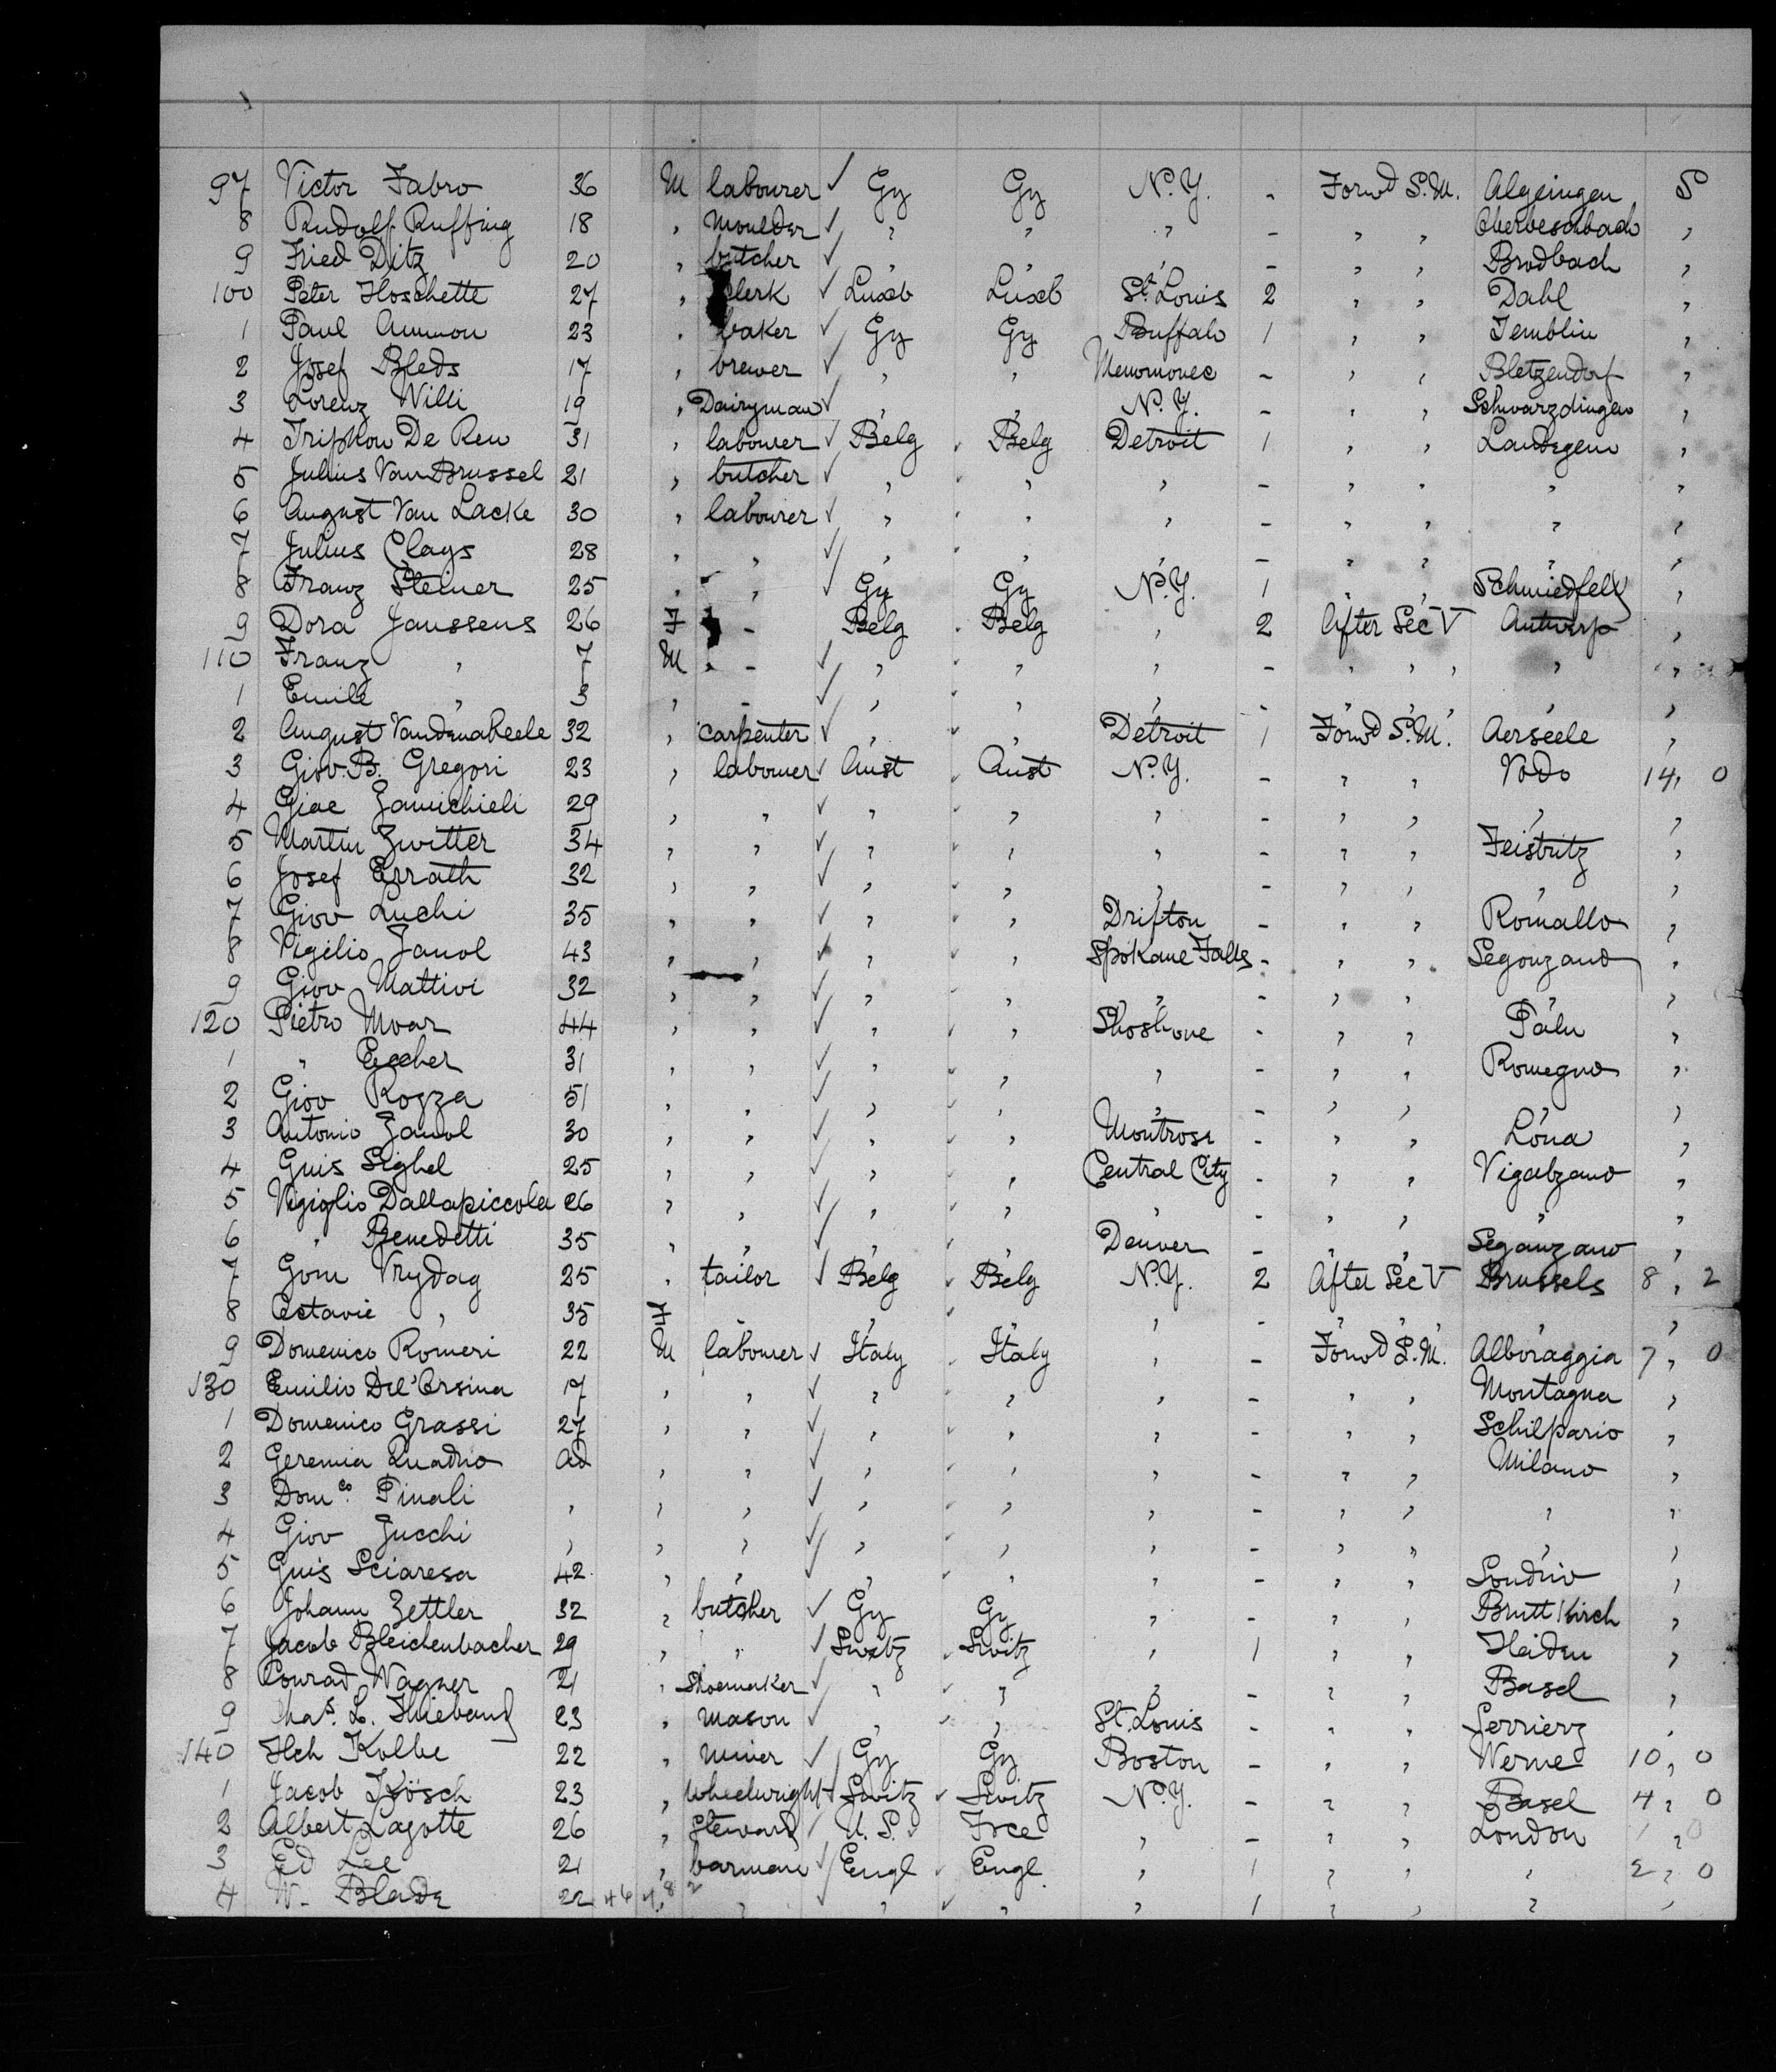 97 Victor Fabro 36 M labourer ✓ Gy Gy N.Y. - Forwd S.M. Algeingen S
8 Rudolf Ruffing 18 , moulder ✓ , , , - , , Oberbeschbach ,
9 Fried Ditz 20 , butcher ✓ , , , - , , Brodbach ,
100 Peter Hoschette 27 , clerk ✓ Luxb Luxb St. Louis 2 , , Dahl ,
1 Paul Ammon 23 , baker ✓ Gy Gy Buffalo 1 , , Templin ,
2 Josef Bleds 17 , brewer ✓ , , - , , Bletzendorf ,
3 Lorenz Willi 19 , Dairyman ✓ , , N.Y. - , , Schwarzdingen ,
4 Triphon De Reu 31 , labourer ✓ Belg Belg Detroit 1 , , Landegem ,
5 Julius Van Brussel 21 , butcher ✓ , , , - , , , ,
6 August Van Lacke 30 , labourer ✓ , , , - , , , ,
7 Julius Clays 28 , , ✓ , , , - , , , ,
8 Franz Steiner 25 , , ✓ Gy Gy N.Y. 1 , , Schmiedfeld ,
9 Dora Janssens 26 F - Belg Belg , 2 After Sec V Antwerp ,
110 Franz , 7 M - ✓ , , , - , , , , ,
1 Emile , 3 , - ✓ , , , - , , , , ,
2 August Vandenabeele 32 , carpenter ✓ , , Detroit 1 Forwd S.M. Aerseele ,
3 Giov. B. Gregori 23 , labourer ✓ Aust Aust N.Y. - , , Vodo 14, 0
4 Giac Zamichieli 29 , , ✓ , , , - , , , ,
5 Martin Zwitter 34 , , ✓ , , , - , , Feistritz ,
6 Josef Errath 32 , , ✓ , , , - , , , ,
7 Giov Luchi 35 , , ✓ , , Drifton - , , Romallo ,
8 Vigilio Zanol 43 , , ✓ , , Spokane Falls - , , Segonzano ,
9 Giov Mattivi 32 , , ✓ , , , - , , , ,
120 Pietro Moar 44 , , ✓ , , Shoshone - , , Palu ,
1 " Eccher 31 , , ✓ , , , - , , Romegno ,
2 Giov Rozza 51 , , ✓ , , , - , , , ,
3 Antonio Zanol 30 , , ✓ , , Montrose - , , Lona ,
4 Guis Sighel 25 , , ✓ , , Central City - , , Vigalzano ,
5 Vigiglio Dallapiccola 26 , , ✓ , , , - , , , ,
6 " Benedetti 35 , , ✓ , , Denver - , , Seganzano ,
7 Gom Vrydag 25 , tailor ✓ Belg ✓ Belg N.Y. 2 After Sec V Brussels 8, 2
8 Octavie , 35 F - , ✓ , , - , , , , ,
9 Domenico Romeri 22 M labourer ✓ Italy Italy , - Forwd S.M. Alboraggia 7, 0
130 Emilio Del'Orsina 17 , , ✓ , , , - , , Montagna ,
1 Domenico Grassi 27 , , ✓ , , , - , , Schilpario ,
2 Geremia Quadrio ad , , ✓ , , , - , , Milano ,
3 Dom co. Pinali , , , ✓ , , , - , , , ,
4 Giov Zucchi , , , ✓ , , , - , , , ,
5 Guis Sciaresa 42 , , ✓ , , , - , , Sondrio ,
6 Johann Zettler 32 , butcher ✓ Gy Gy , - , , Brutt Kirch ,
7 Jacob Bleichenbacher 29 , , ✓ Switz Switz , 1 , , Heiden ,
8 Conrad Wagner 21 , Shoemaker ✓ , , , - , , Basel ,
9 Chas. L. Thiebaud 23 , mason ✓ , , St. Louis - , , ,
140 Hch Kolbe 22 , miner ✓ Gy Gy Boston - , , Werne 10, 0
1 Jacob Kösch 23 , wheelwright ✓ Switz ✓ Switz N.Y. - , , Basel 4, 0
2 Albert Lagotte 26 , Steward ✓ U.S. Frce , - , , London 1, 0
3 Ed Lee 21 , barman ✓ Engl ✓ Engl. , 1 , , , 2, 0
4 W. Blade 22 , ✓ , ✓ , , 1 , , , ,